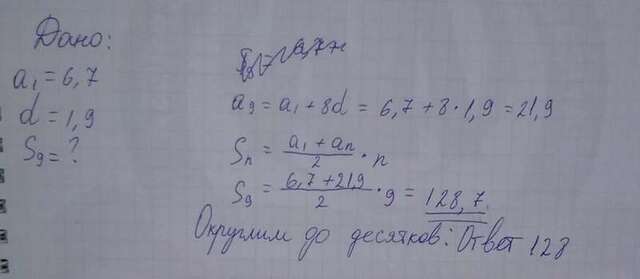 Дано:
a₁ = 6,7
d = 1,9
S₉ = ?
a₉ = a₁ + 8d = 6,7 + 8 · 1,9 = 21,9
Sₙ = (a₁ + aₙ)/2 · n
S₉ = (6,7 + 21,9)/2 · 9 = 128,7.
Округлим до десятков: Ответ 128